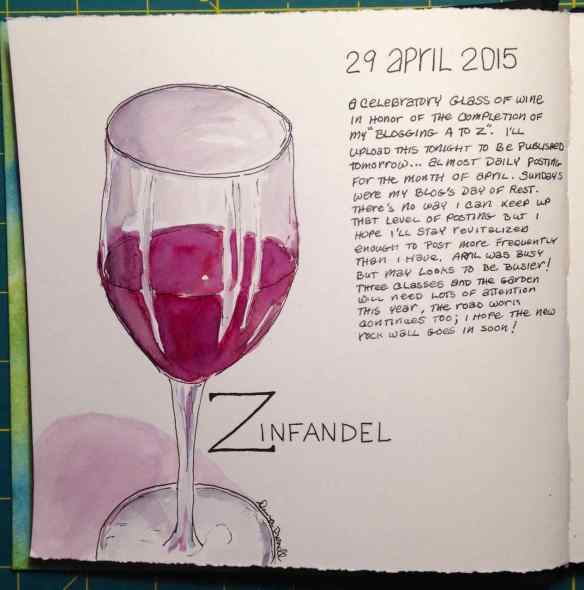 29 APRIL 2015
A CELEBRATORY GLASS OF WINE
IN HONOR OF THE COMPLETION OF
MY "BLOGGING A TO Z". I'LL
UPLOAD THIS TONIGHT TO BE PUBLISHED
TOMORROW... ALMOST DAILY POSTING
FOR THE MONTH OF APRIL. SUNDAYS
WERE MY BLOG'S DAY OF REST.
THERE'S NO WAY I CAN KEEP UP
THAT LEVEL OF POSTING BUT I
HOPE I'LL STAY REVITALIZED
ENOUGH TO POST MORE FREQUENTLY
THAN I HAVE. APRIL WAS BUSY
BUT MAY LOOKS TO BE BUSIER!
THREE CLASSES AND THE GARDEN
WILL NEED LOTS OF ATTENTION
THIS YEAR, THE ROAD WORK
CONTINUES TOO; I HOPE THE NEW
ROCK WALL GOES IN SOON!
ZINFANDEL